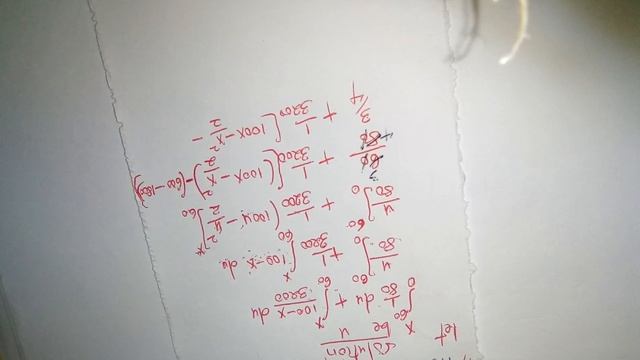 Solution
let x be u
∫₀⁶⁰ 1/80 du + ∫₆₀ˣ 100-x/3200 du
u/80 ]₀⁶⁰ + 1/3200 ∫₆₀ˣ 100-x du
u/80 ]₀⁶⁰ + 1/3200 [100u - u²/2]₆₀ˣ
+ 1/3200 [(100x - x²/2) - (600-1800)]
3/4 + 1/3200 [100x - x²/2 -